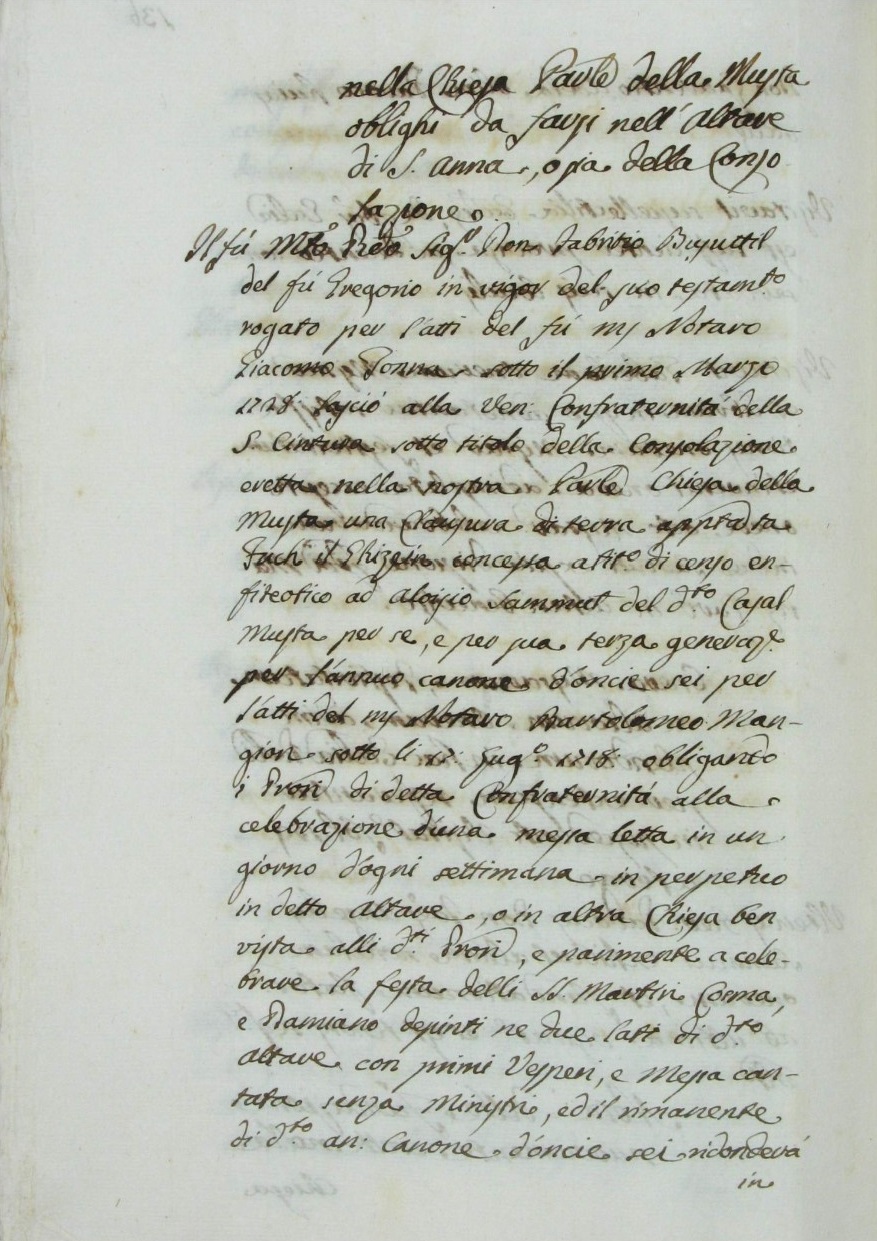 nella Chiesa Parle della Musta
oblighi da farsi nell'Altare
di S. Anna, o sia della Conso
lazione.
Il fú Mto Rdo Sigr. Don Fabritio Busuttil
del fú Gregorio in vigor del suo testamto
rogato per l'atti del fú mg Notaro
Giacomo Bonna sotto il primo Marzo
1728: lasció alla Ven: Confraternitá della
S. Cintura sotto titolo della Consolazione
eretta nella nostra Parle Chiesa della
Musta una Clausura di terra
il concessa a tito di censo en-
fiteotico ad Aloisio Sammut del dto Casal
Musta per se, e per sua terza generaze
per l'annuo canone d'oncie sei per
l'atti del mg Notaro Bartolomeo Man-
gion sotto li 17: Lugo 1718: obligando
i Prori di detta Confraternitá alla
celebrazione d'una messa letta in un
giorno d'ogni settimana in perpetuo
in detto Altare, o in altra Chiesa ben
vista alli dti Prori, e parimente a cele-
brare la festa delli SS. Martiri Cosma,
e Damiano depinti ne due lati di dto
altare con primi Vesperi, e Messa can-
tata senza Ministri, ed il rimanente
di dto an: Canone d'oncie sei ridonderá
in